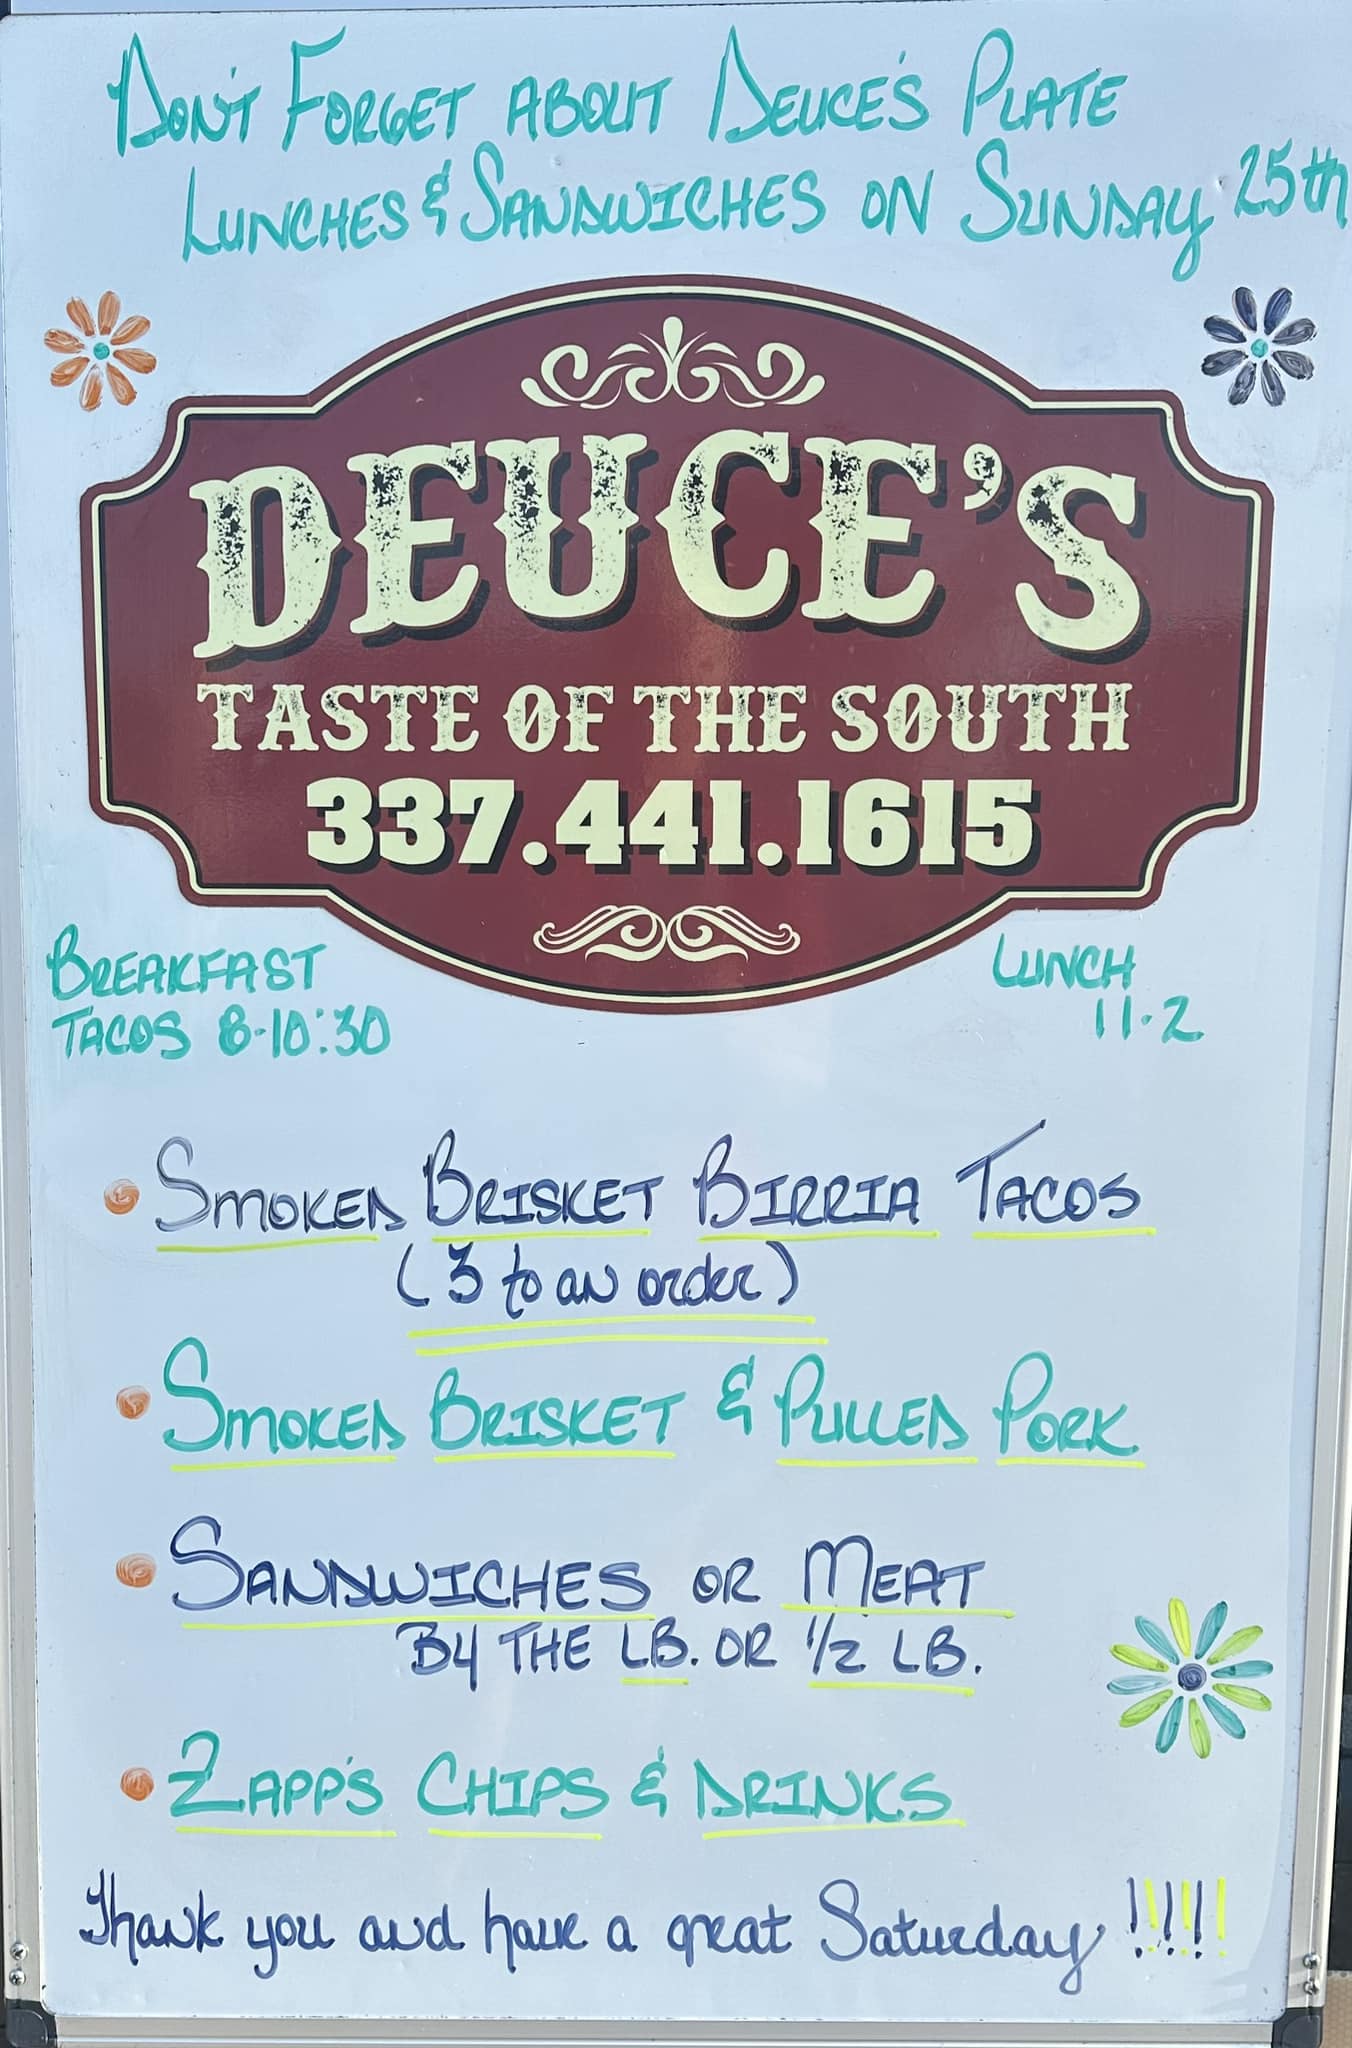 DON'T FORGET ABOUT DEUCE'S PLATE
LUNCHES & SANDWICHES ON SUNDAY 25th
DEUCE'S
TASTE OF THE SOUTH
337.441.1615
BREAKFAST
TACOS 8-10:30
LUNCH
11-2
• SMOKED BRISKET BIRRIA TACOS
(3 to an order)
• SMOKED BRISKET & PULLED PORK
• SANDWICHES OR MEAT
BY THE LB. OR 1/2 LB.
• ZAPP'S CHIPS & DRINKS
Thank you and have a great Saturday !!!!!!